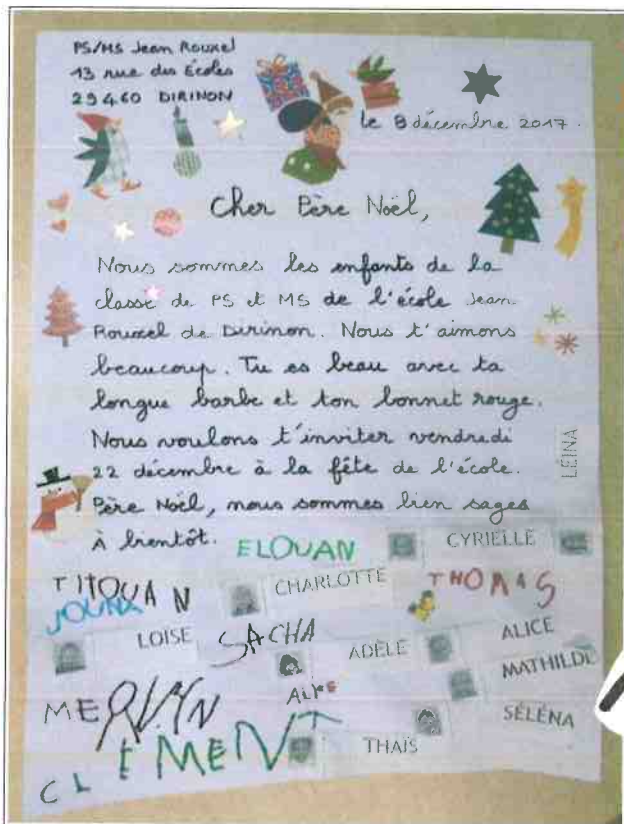 PS/MS Jean Rouxel
13 rue des Écoles
29460 DIRINON
le 8 décembre 2017.
Cher Père Noël,
Nous sommes les enfants de la
classe de PS et MS de l'école Jean
Rouxel de Dirinon. Nous t'aimons
beaucoup. Tu es beau avec ta
longue barbe et ton bonnet rouge.
Nous voulons t'inviter vendredi
22 décembre à la fête de l'école.
Père Noël, nous sommes bien sages
À bientôt.
LÉINA
ELOUAN
CYRIELLE
TITOUAN
CHARLOTTE
THOMAS
LOISE
SACHA
ADÈLE
ALICE
MATHILDE
SÉLÉNA
CLEMENT
THAÏS